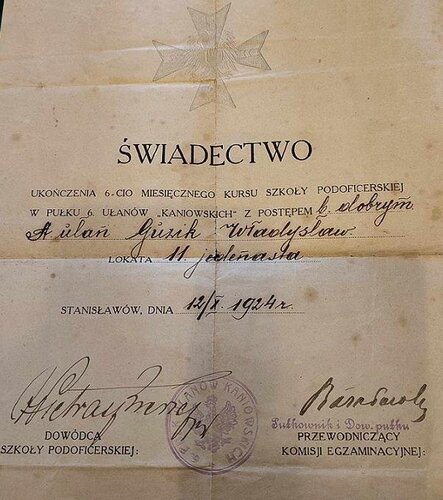 ŚWIADECTWO
UKOŃCZENIA 6-CIO MIESIĘCZNEGO KURSU SZKOŁY PODOFICERSKIEJ
W PUŁKU 6. UŁANÓW „KANIOWSKICH" Z POSTĘPEM b. dobrym
ułan Guzik Władysław
LOKATA 11 jedenasta
STANISŁAWÓW, DNIA 12/X. 1924 r.
UŁANÓW KANIOWSKICH
Pułkownik i Dow. pułku
DOWÓDCA PRZEWODNICZĄCY
SZKOŁY PODOFICERSKIEJ: KOMISJI EGZAMINACYJNEJ: